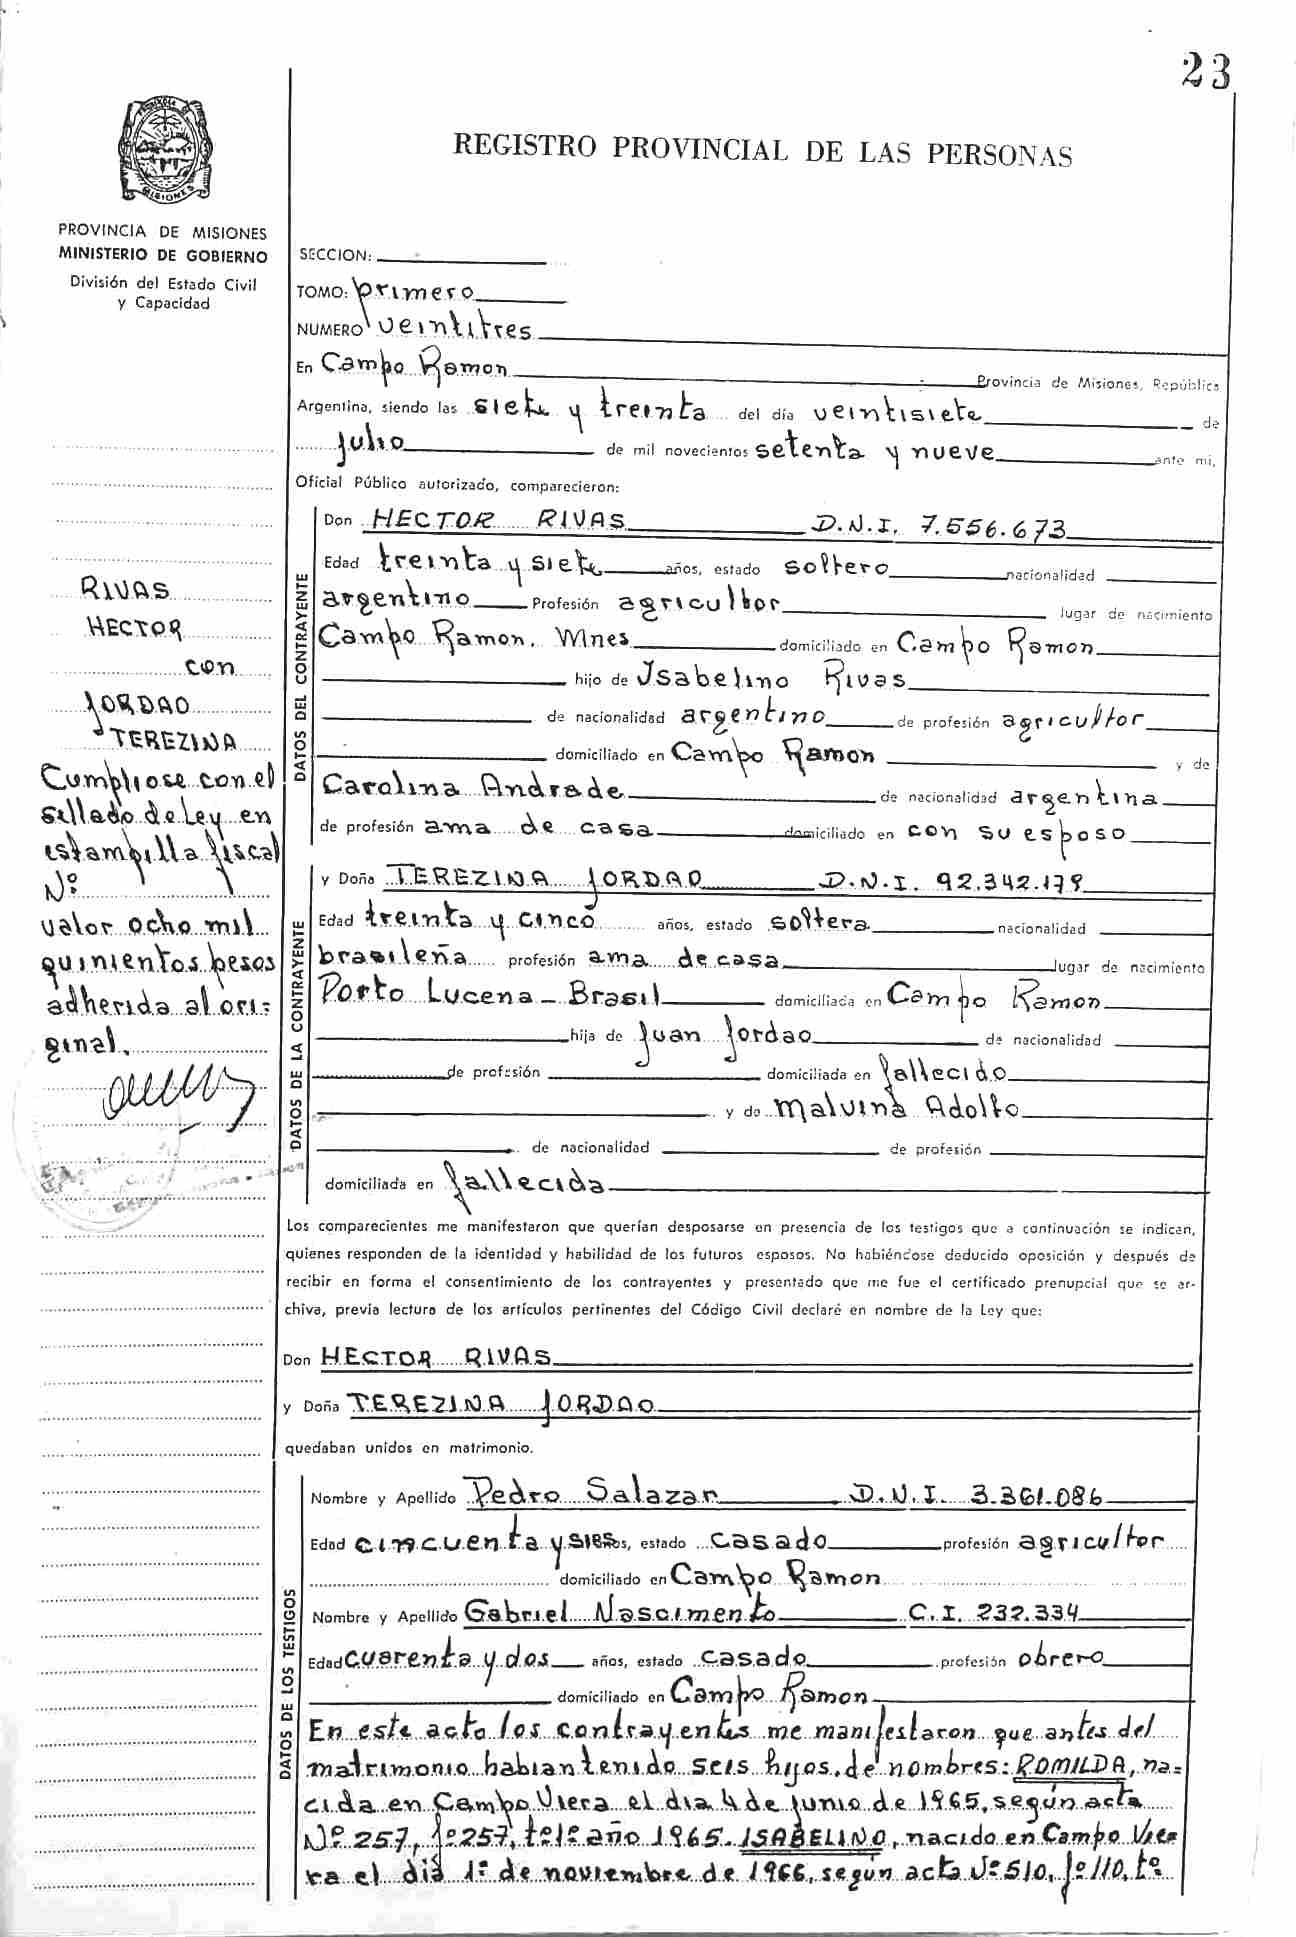 23
REGISTRO PROVINCIAL DE LAS PERSONAS
PROVINCIA DE MISIONES
MINISTERIO DE GOBIERNO
División del Estado Civil
y Capacidad
SECCION:
TOMO: primero
NUMERO veintitres
En Campo Ramon Provincia de Misiones, República
Argentina, siendo las siete y treinta del día veintisiete de
julio de mil novecientos setenta y nueve ante mi,
Oficial Público autorizado, comparecieron:
RIVAS
HECTOR
con
JORDAO
TEREZINA
Cumpliose con el
sellado de Ley en
estampilla fiscal
Nº
valor ocho mil
quinientos pesos
adherida al ori-
ginal.
DATOS DEL CONTRAYENTE
Don HECTOR RIVAS D.N.I. 7.556.673
Edad treinta y siete años, estado soltero nacionalidad
argentino Profesión agricultor lugar de nacimiento
Campo Ramon, Mnes domiciliado en Campo Ramon
hijo de Isabelino Rivas
de nacionalidad argentino de profesión agricultor
domiciliado en Campo Ramon y de
Carolina Andrade de nacionalidad argentina
de profesión ama de casa domiciliado en con su esposo
DATOS DE LA CONTRAYENTE
y Doña TEREZINA JORDAO D.N.I. 92.342.179
Edad treinta y cinco años, estado soltera nacionalidad
brasileña profesión ama de casa lugar de nacimiento
Porto Lucena - Brasil domiciliada en Campo Ramon
hija de Juan Jordao de nacionalidad
de profesión domiciliada en fallecido
y de Malvina Adolfo
de nacionalidad de profesión
domiciliada en fallecida
Los comparecientes me manifestaron que querían desposarse en presencia de los testigos que a continuación se indican,
quienes responden de la identidad y habilidad de los futuros esposos. No habiéndose deducido oposición y después de
recibir en forma el consentimiento de los contrayentes y presentado que me fue el certificado prenupcial que se ar-
chiva, previa lectura de los artículos pertinentes del Código Civil declaré en nombre de la Ley que:
Don HECTOR RIVAS
y Doña TEREZINA JORDAO
quedaban unidos en matrimonio.
DATOS DE LOS TESTIGOS
Nombre y Apellido Pedro Salazar D.N.I. 3.361.086
Edad cincuenta y años, estado casado profesión agricultor
domiciliado en Campo Ramon
Nombre y Apellido Gabriel Nascimento C.I. 232.334
Edad cuarenta y dos años, estado casado profesión obrero
domiciliado en Campo Ramon
En este acto los contrayentes me manifestaron que antes del
matrimonio habian tenido seis hijos, de nombres: ROMILDA, na-
cida en Campo Viera el dia 4 de junio de 1965, según acta
Nº 257, fº 257, tº 1º año 1965. ISABELINO, nacido en Campo Vie
ra el dia 1º de noviembre de 1966, según acta Nº 510, fº 110, tº